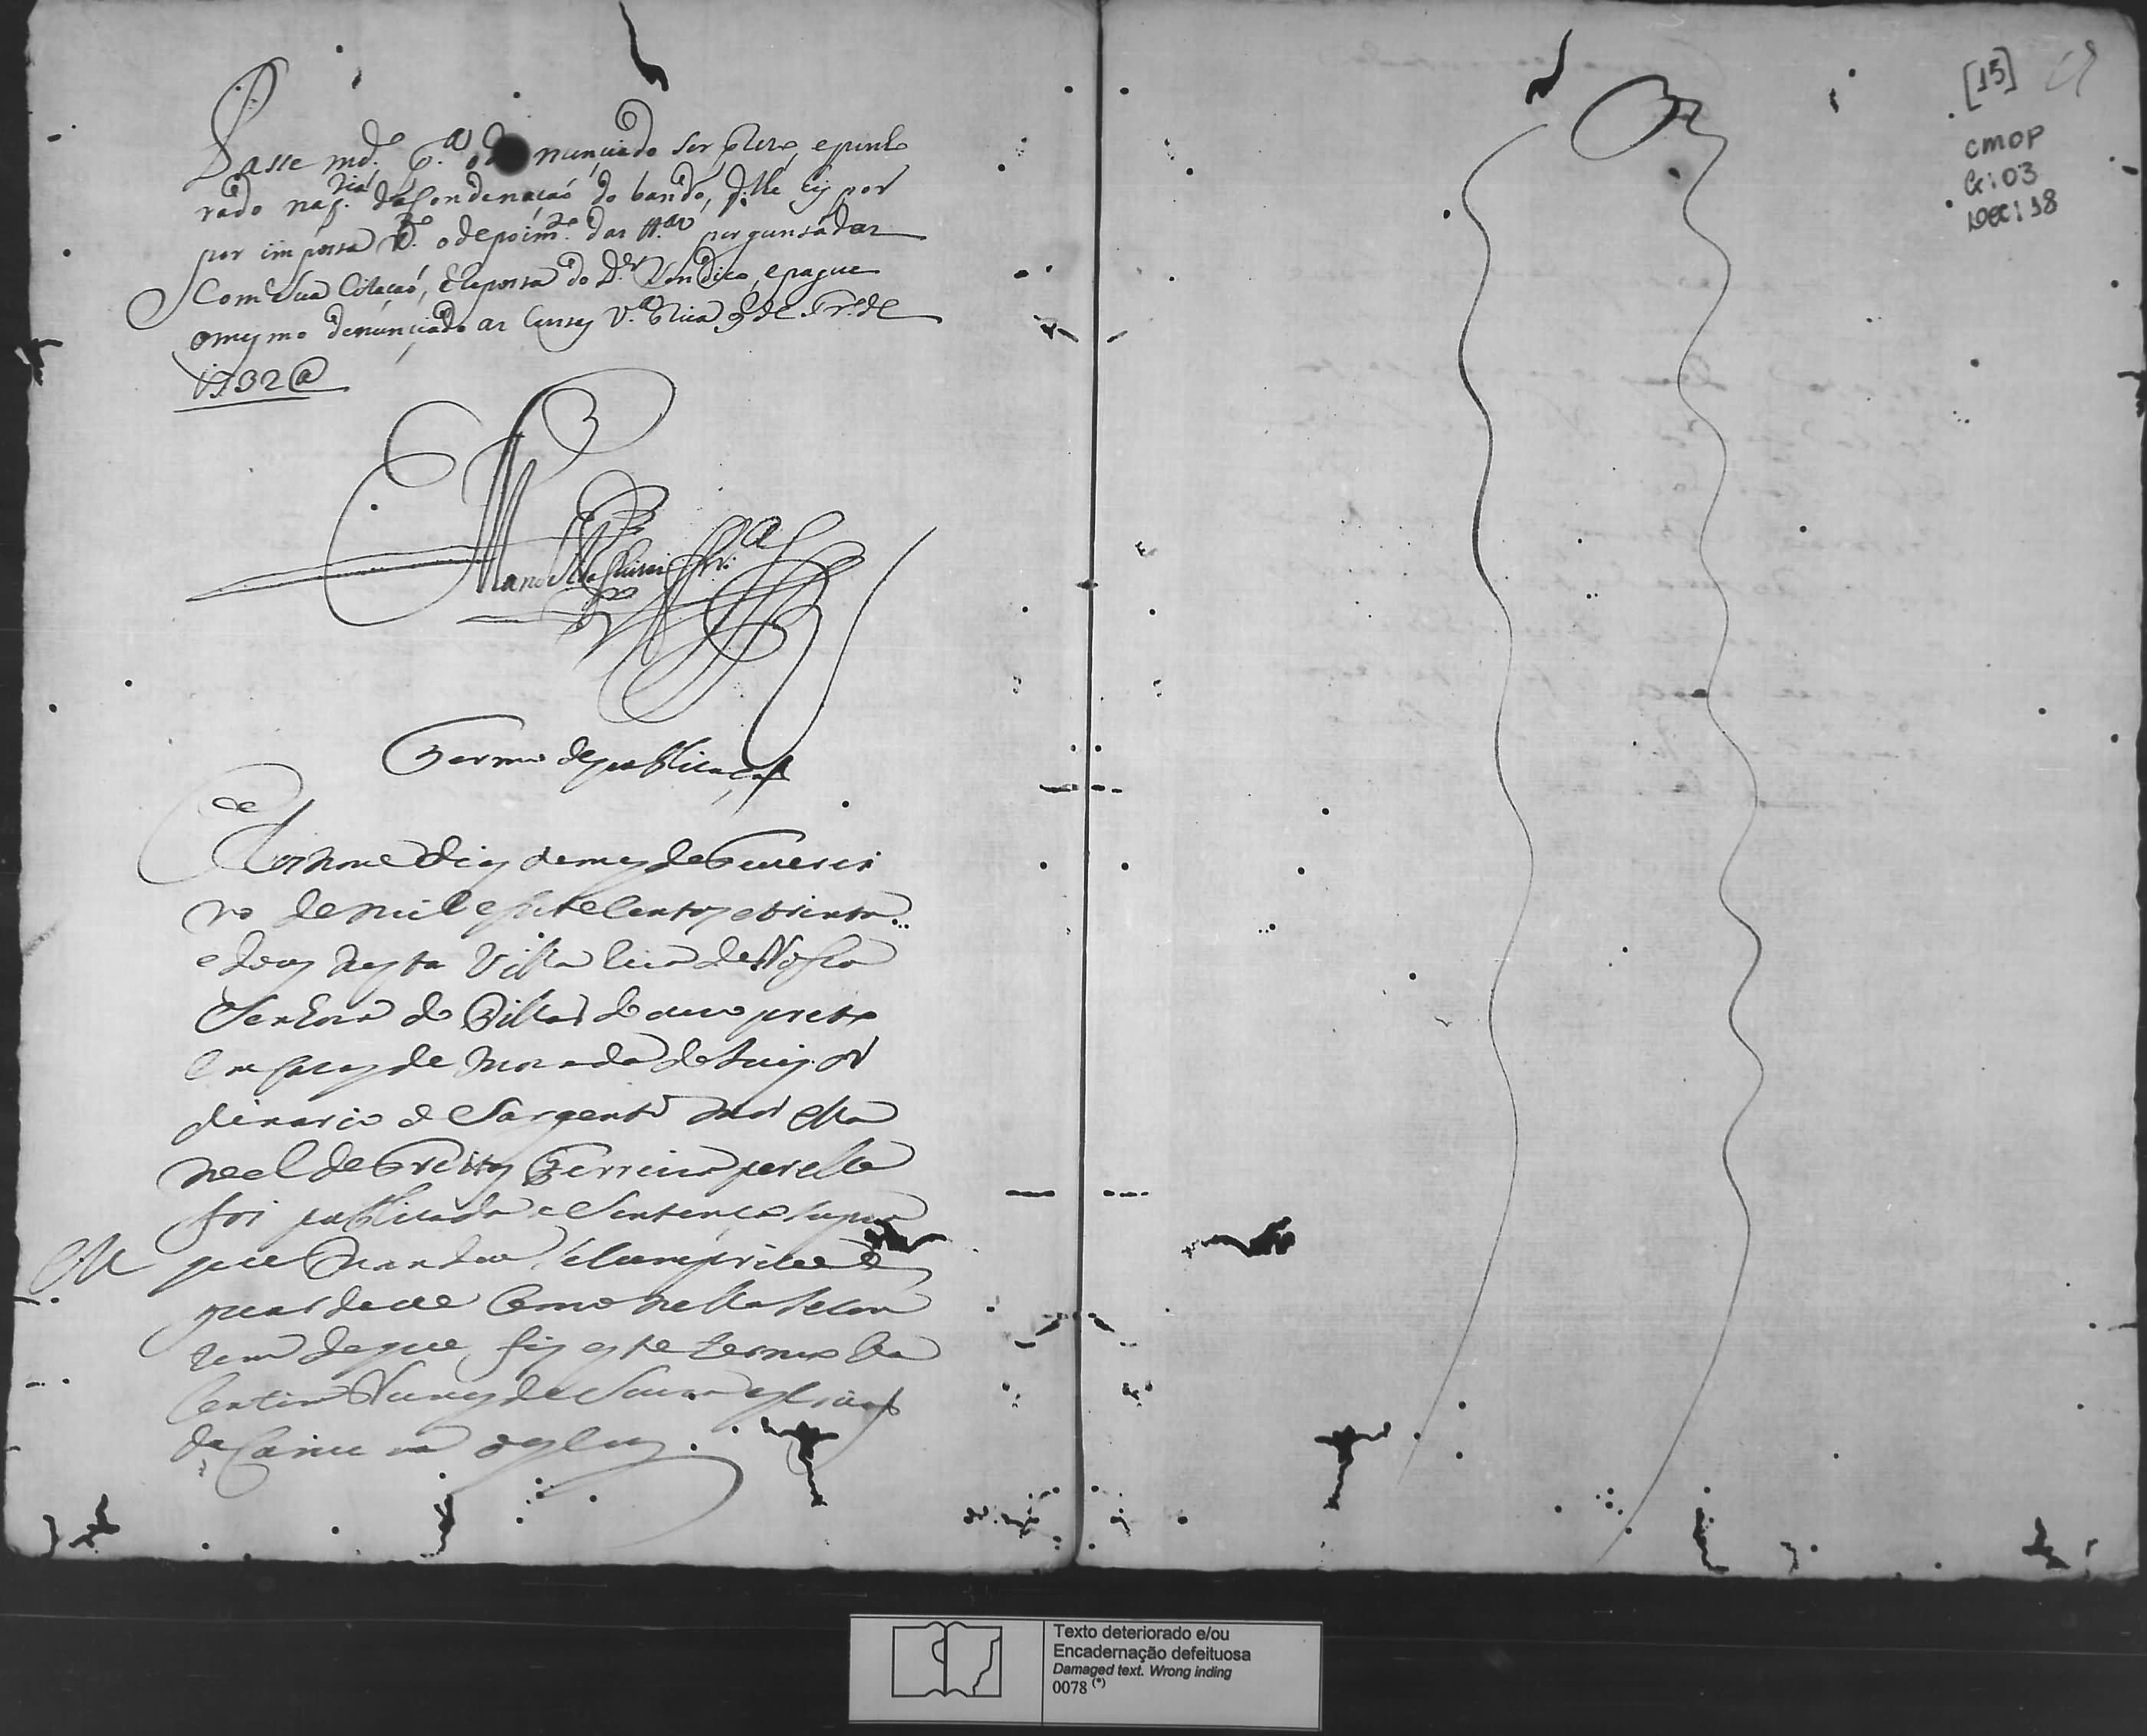 Passe md.º p.ª o denunciado ser prezo, e puxado
rado na fr.ª da Condenaçaõ do bando, q̃ lhe hey por
por imposta v.to o depoim.to das tt.as perguntadas
Com Sua Citaçaõ, e reposta do D.or Sindico, e pague
o mesmo denunciado as Custas V.ª Rica 9 de Fevr.º de
1732 @
Manoel
Termo de publicaçaõ
Aos nove dias do mes de Feverei
ro de mil e sete centos e trinta
e dous nesta Villa Rica de Nossa
Senhora do Pillar do ouro preto
em casas de morada do Juis or
dinario o Sargento mor Ma
noel de Freitas Ferreira por elle
foi publicada a Sentença supra
que mandou se cumprice e
guardace Como nella se con
tem de que fis este termo
Nunes de Souza escrivaõ
da Camera o escrevy
[15]
CMOP
Cx: 03
Doc: 38
Texto deteriorado e/ou
Encadernação defeituosa
Damaged text. Wrong inding
0078 (*)